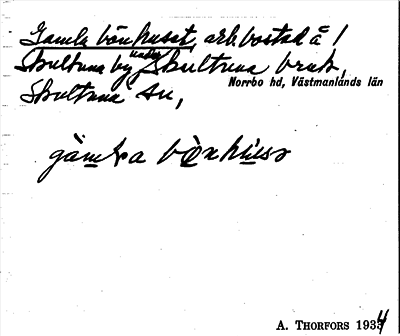 Gamla bönhuset, arb.bostad å 1
Skultuna by under Skultuna bruk,
Norrbo hd, Västmanlands län
Skultuna sn,
gàmla bònhusə
A. THORFORS 1934